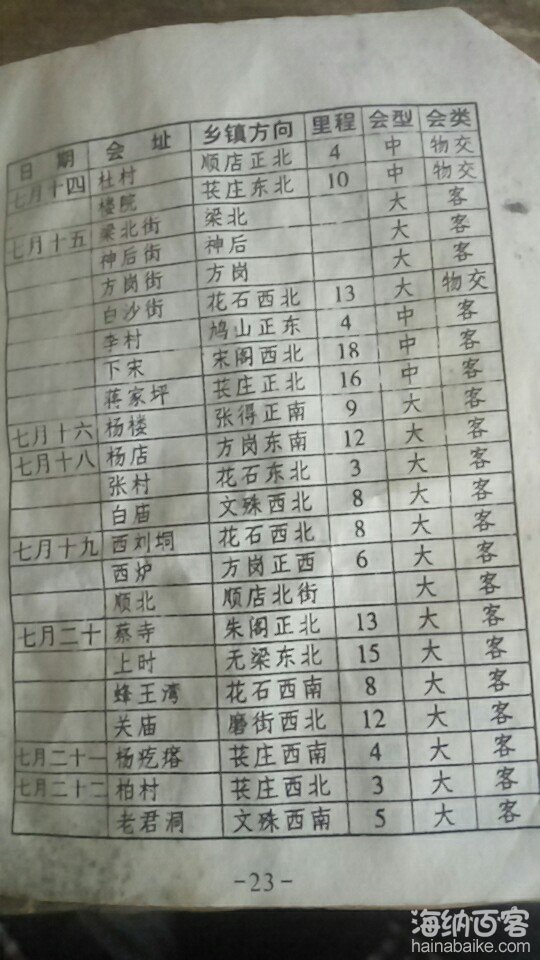 日期 会址 乡镇方向 里程 会型 会类
七月十四 杜村 顺店正北 4 中 物交
楼院 苌庄东北 10 中 物交
七月十五 梁北街 梁北 大 客
神后街 神后 大 客
方岗街 方岗 大 客
白沙街 花石西北 13 大 物交
李村 鸠山正东 4 中 客
下宋 宋阁西北 18 中 客
蒋家坪 苌庄正北 16 中 客
七月十六 杨楼 张得正南 9 大 客
七月十八 杨店 方岗东南 12 大 客
张村 花石东北 3 大 客
白庙 文殊西北 8 大 客
七月十九 西刘垌 花石西北 8 大 客
西炉 方岗正西 6 大 客
顺北 顺店北街 大 客
七月二十 蔡寺 朱阁正北 13 大 客
上时 无梁东北 15 大 客
蜂王湾 花石西南 8 大 客
关庙 磨街西北 12 大 客
七月二十一 杨疙瘩 苌庄西南 4 大 客
七月二十二 柏村 苌庄西北 3 大 客
老君洞 文殊西南 5 大 客
-23-
海纳百客
hainabaike.com